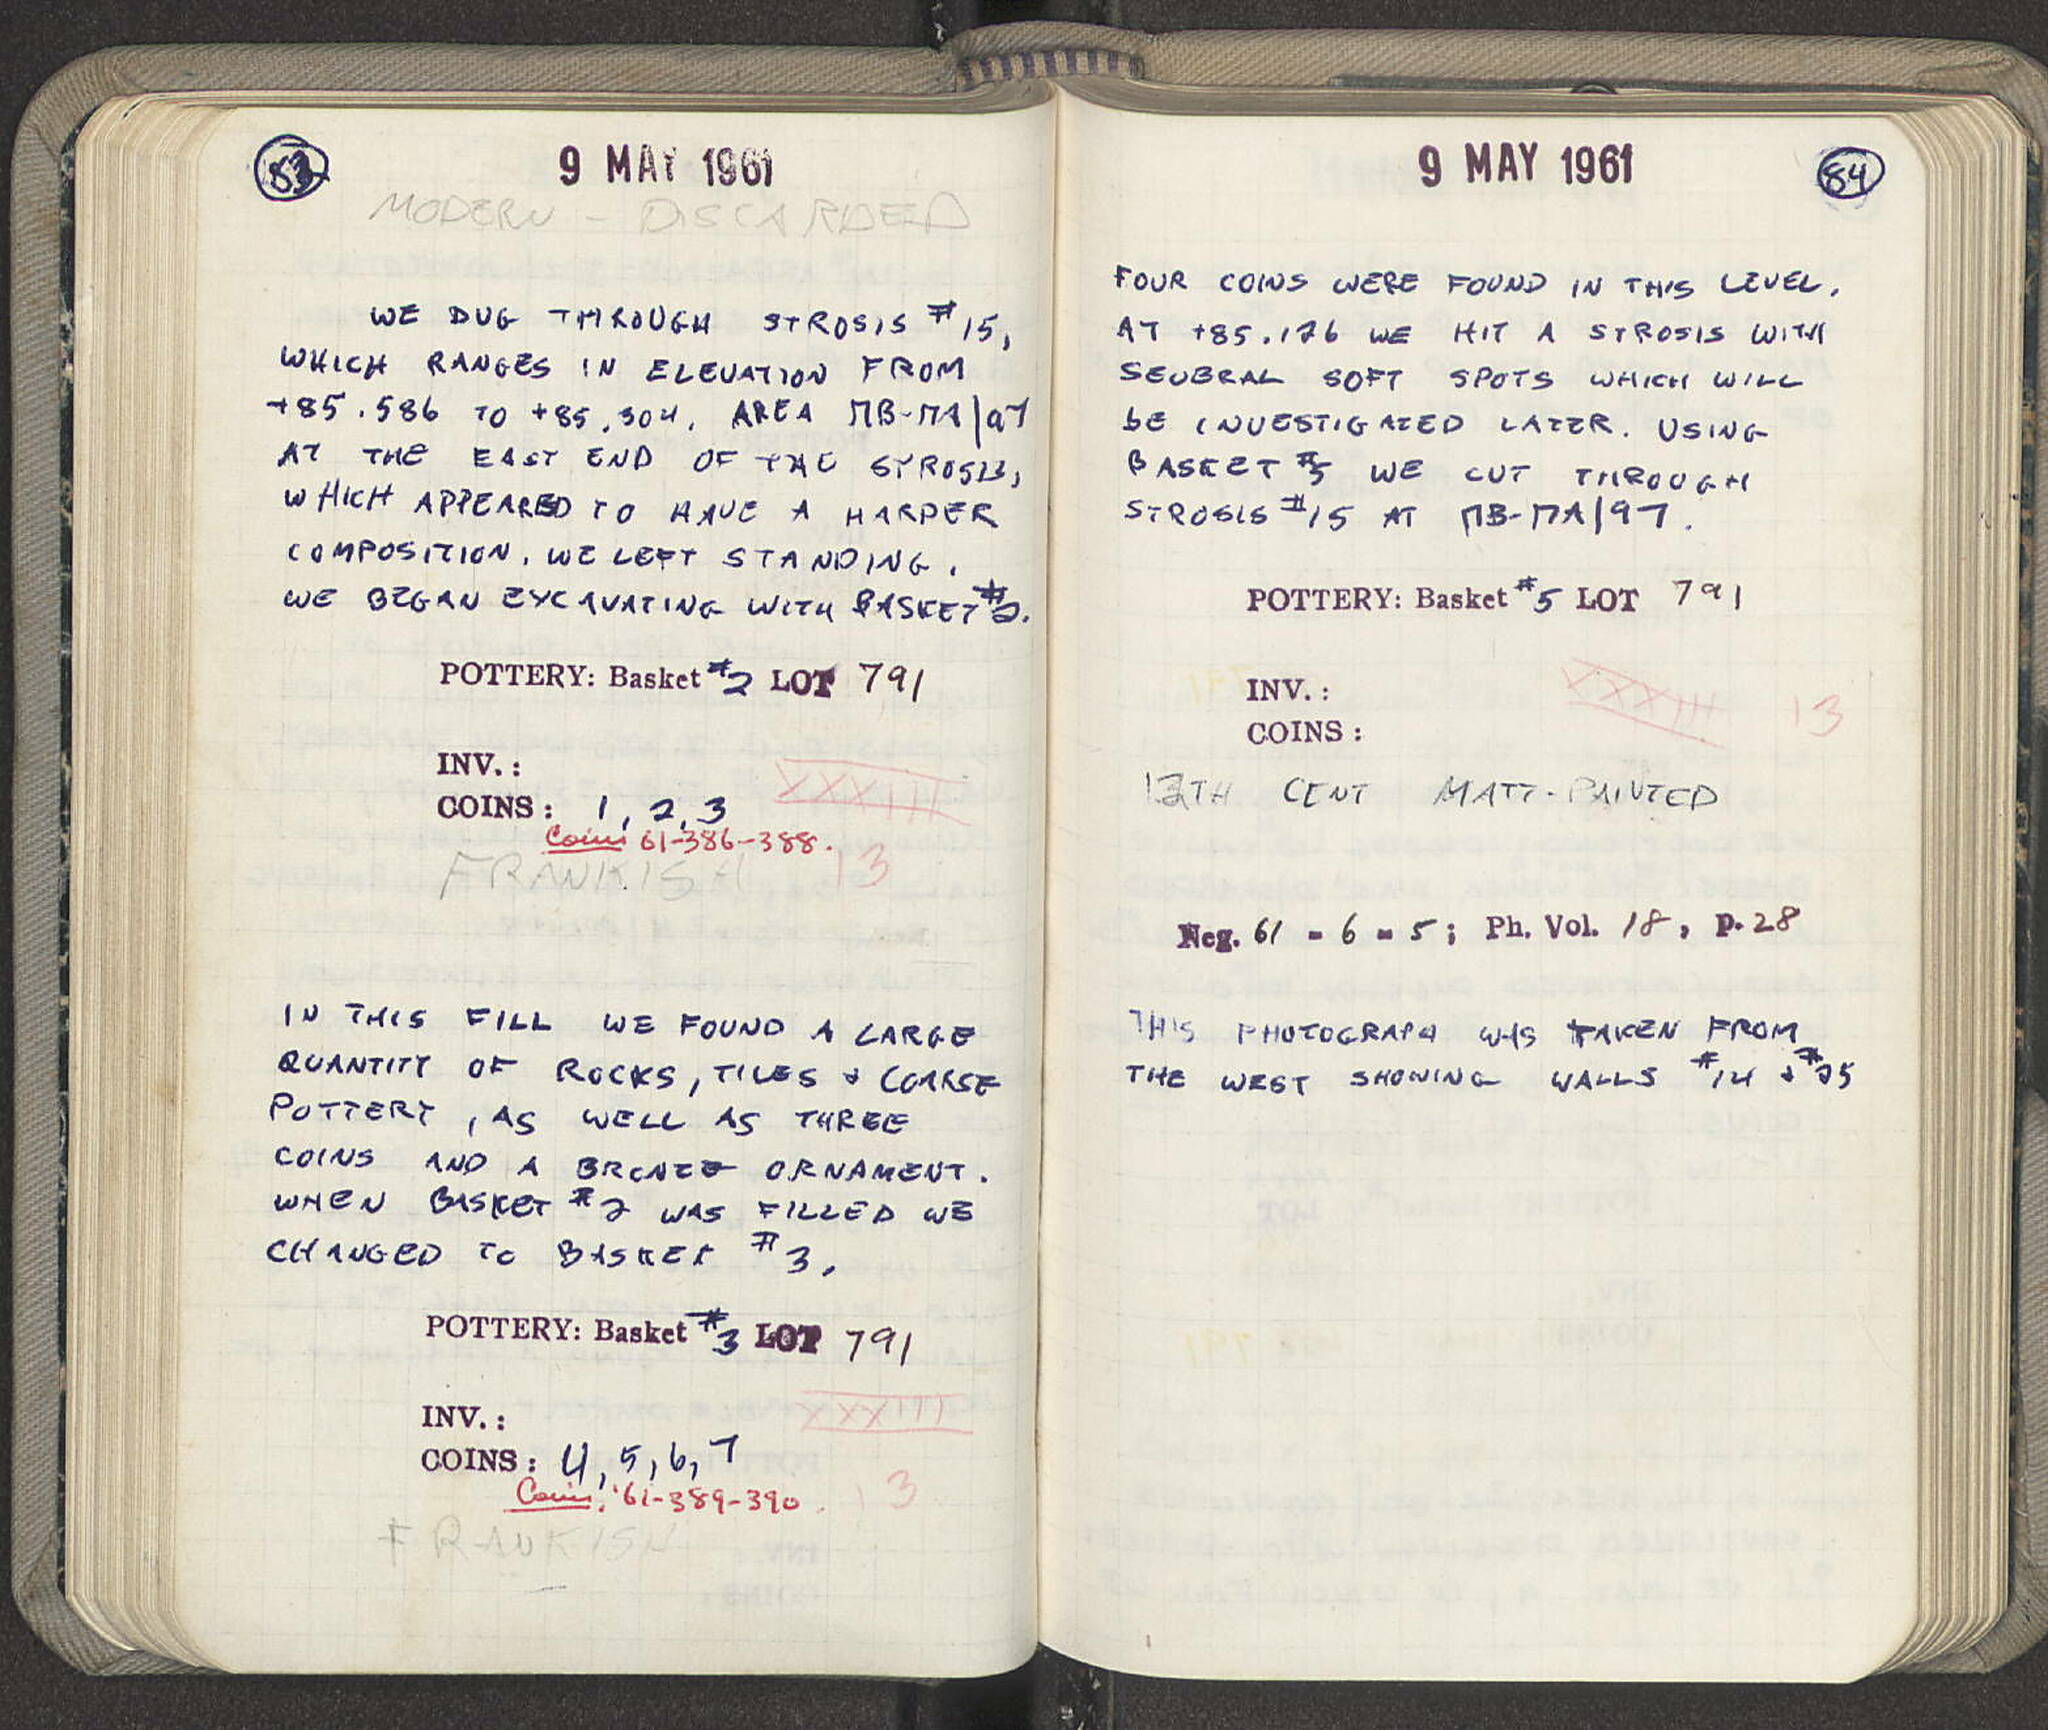 83
9 MAY 1961
MODERN - DISCARDED
WE DUG THROUGH STROSIS #15,
WHICH RANGES IN ELEVATION FROM
+85.586 TO +85.304. AREA ΠB-ΠA/97
AT THE EAST END OF THE STROSIS,
WHICH APPEARED TO HAVE A HARDER
COMPOSITION, WE LEFT STANDING.
WE BEGAN EXCAVATING WITH BASKET #2.
POTTERY: Basket #2 LOT 791
INV.:
XXXIII
COINS: 1, 2, 3
Coins 61-386--388.
FRANKISH 13
IN THIS FILL WE FOUND A LARGE
QUANTITY OF ROCKS, TILES & COARSE
POTTERY, AS WELL AS THREE
COINS AND A BRONZE ORNAMENT.
WHEN BASKET #2 WAS FILLED WE
CHANGED TO BASKET #3.
POTTERY: Basket #3 LOT 791
INV.:
XXXIII
COINS: 4, 5, 6, 7
Coins. '61-389-390. 13
FRANKISH
9 MAY 1961
84
FOUR COINS WERE FOUND IN THIS LEVEL.
AT +85.176 WE HIT A STROSIS WITH
SEVERAL SOFT SPOTS WHICH WILL
BE INVESTIGATED LATER. USING
BASKET #5 WE CUT THROUGH
STROSIS #15 AT ΠB-ΠA/97.
POTTERY: Basket #5 LOT 791
INV.: XXXIII 13
COINS:
TH CENT MATT-PAINTED
Neg. 61 - 6 - 5; Ph. Vol. 18, p. 28
THIS PHOTOGRAPH WAS TAKEN FROM
THE WEST SHOWING WALLS #14 & #25